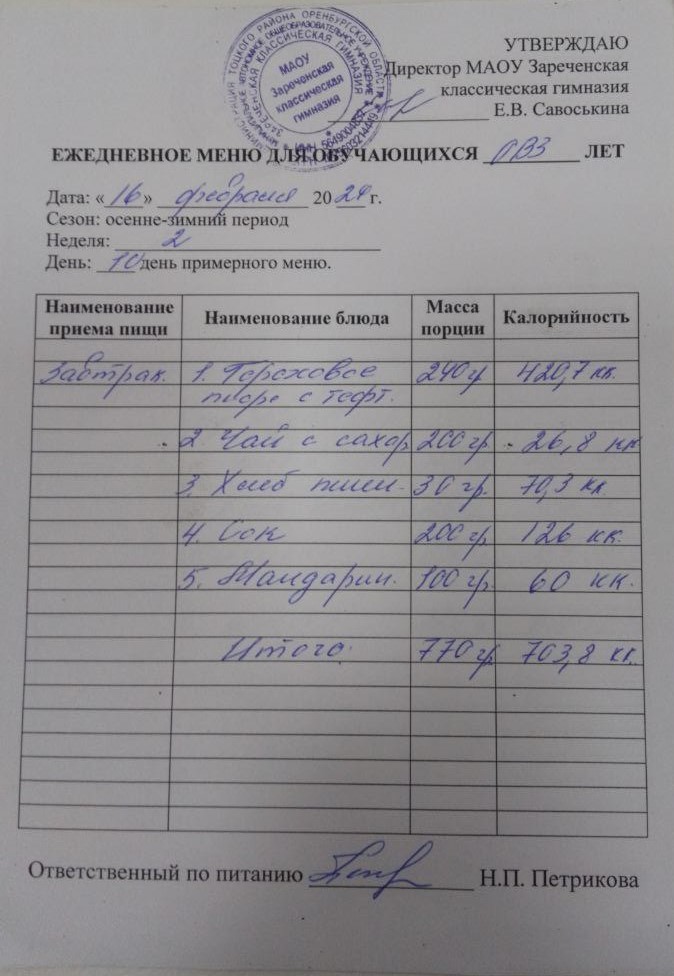 УТВЕРЖДАЮ
Директор МАОУ Зареченская
классическая гимназия
Е.В. Савоськина
МАОУ
Зареченская
классическая
гимназия
ЕЖЕДНЕВНОЕ МЕНЮ ДЛЯ ОБУЧАЮЩИХСЯ ОВЗ ЛЕТ
Дата: «16» февраля 2024 г.
Сезон: осенне-зимний период
Неделя: 2
День: 10 день примерного меню.
Наименование приема пищи Наименование блюда Масса порции Калорийность
Завтрак. 1. Гороховое 240 гр 420,7 кк.
пюре с тефт.
2. Чай с сахар 200 гр 26,8 кк
3. Хлеб пшен. 30 гр. 70,3 кк
4. Сок 200 гр 126 кк.
5. Мандарин. 100 гр. 60 кк.
Итого: 770 гр 703,8 кк.
Ответственный по питанию Н.П. Петрикова